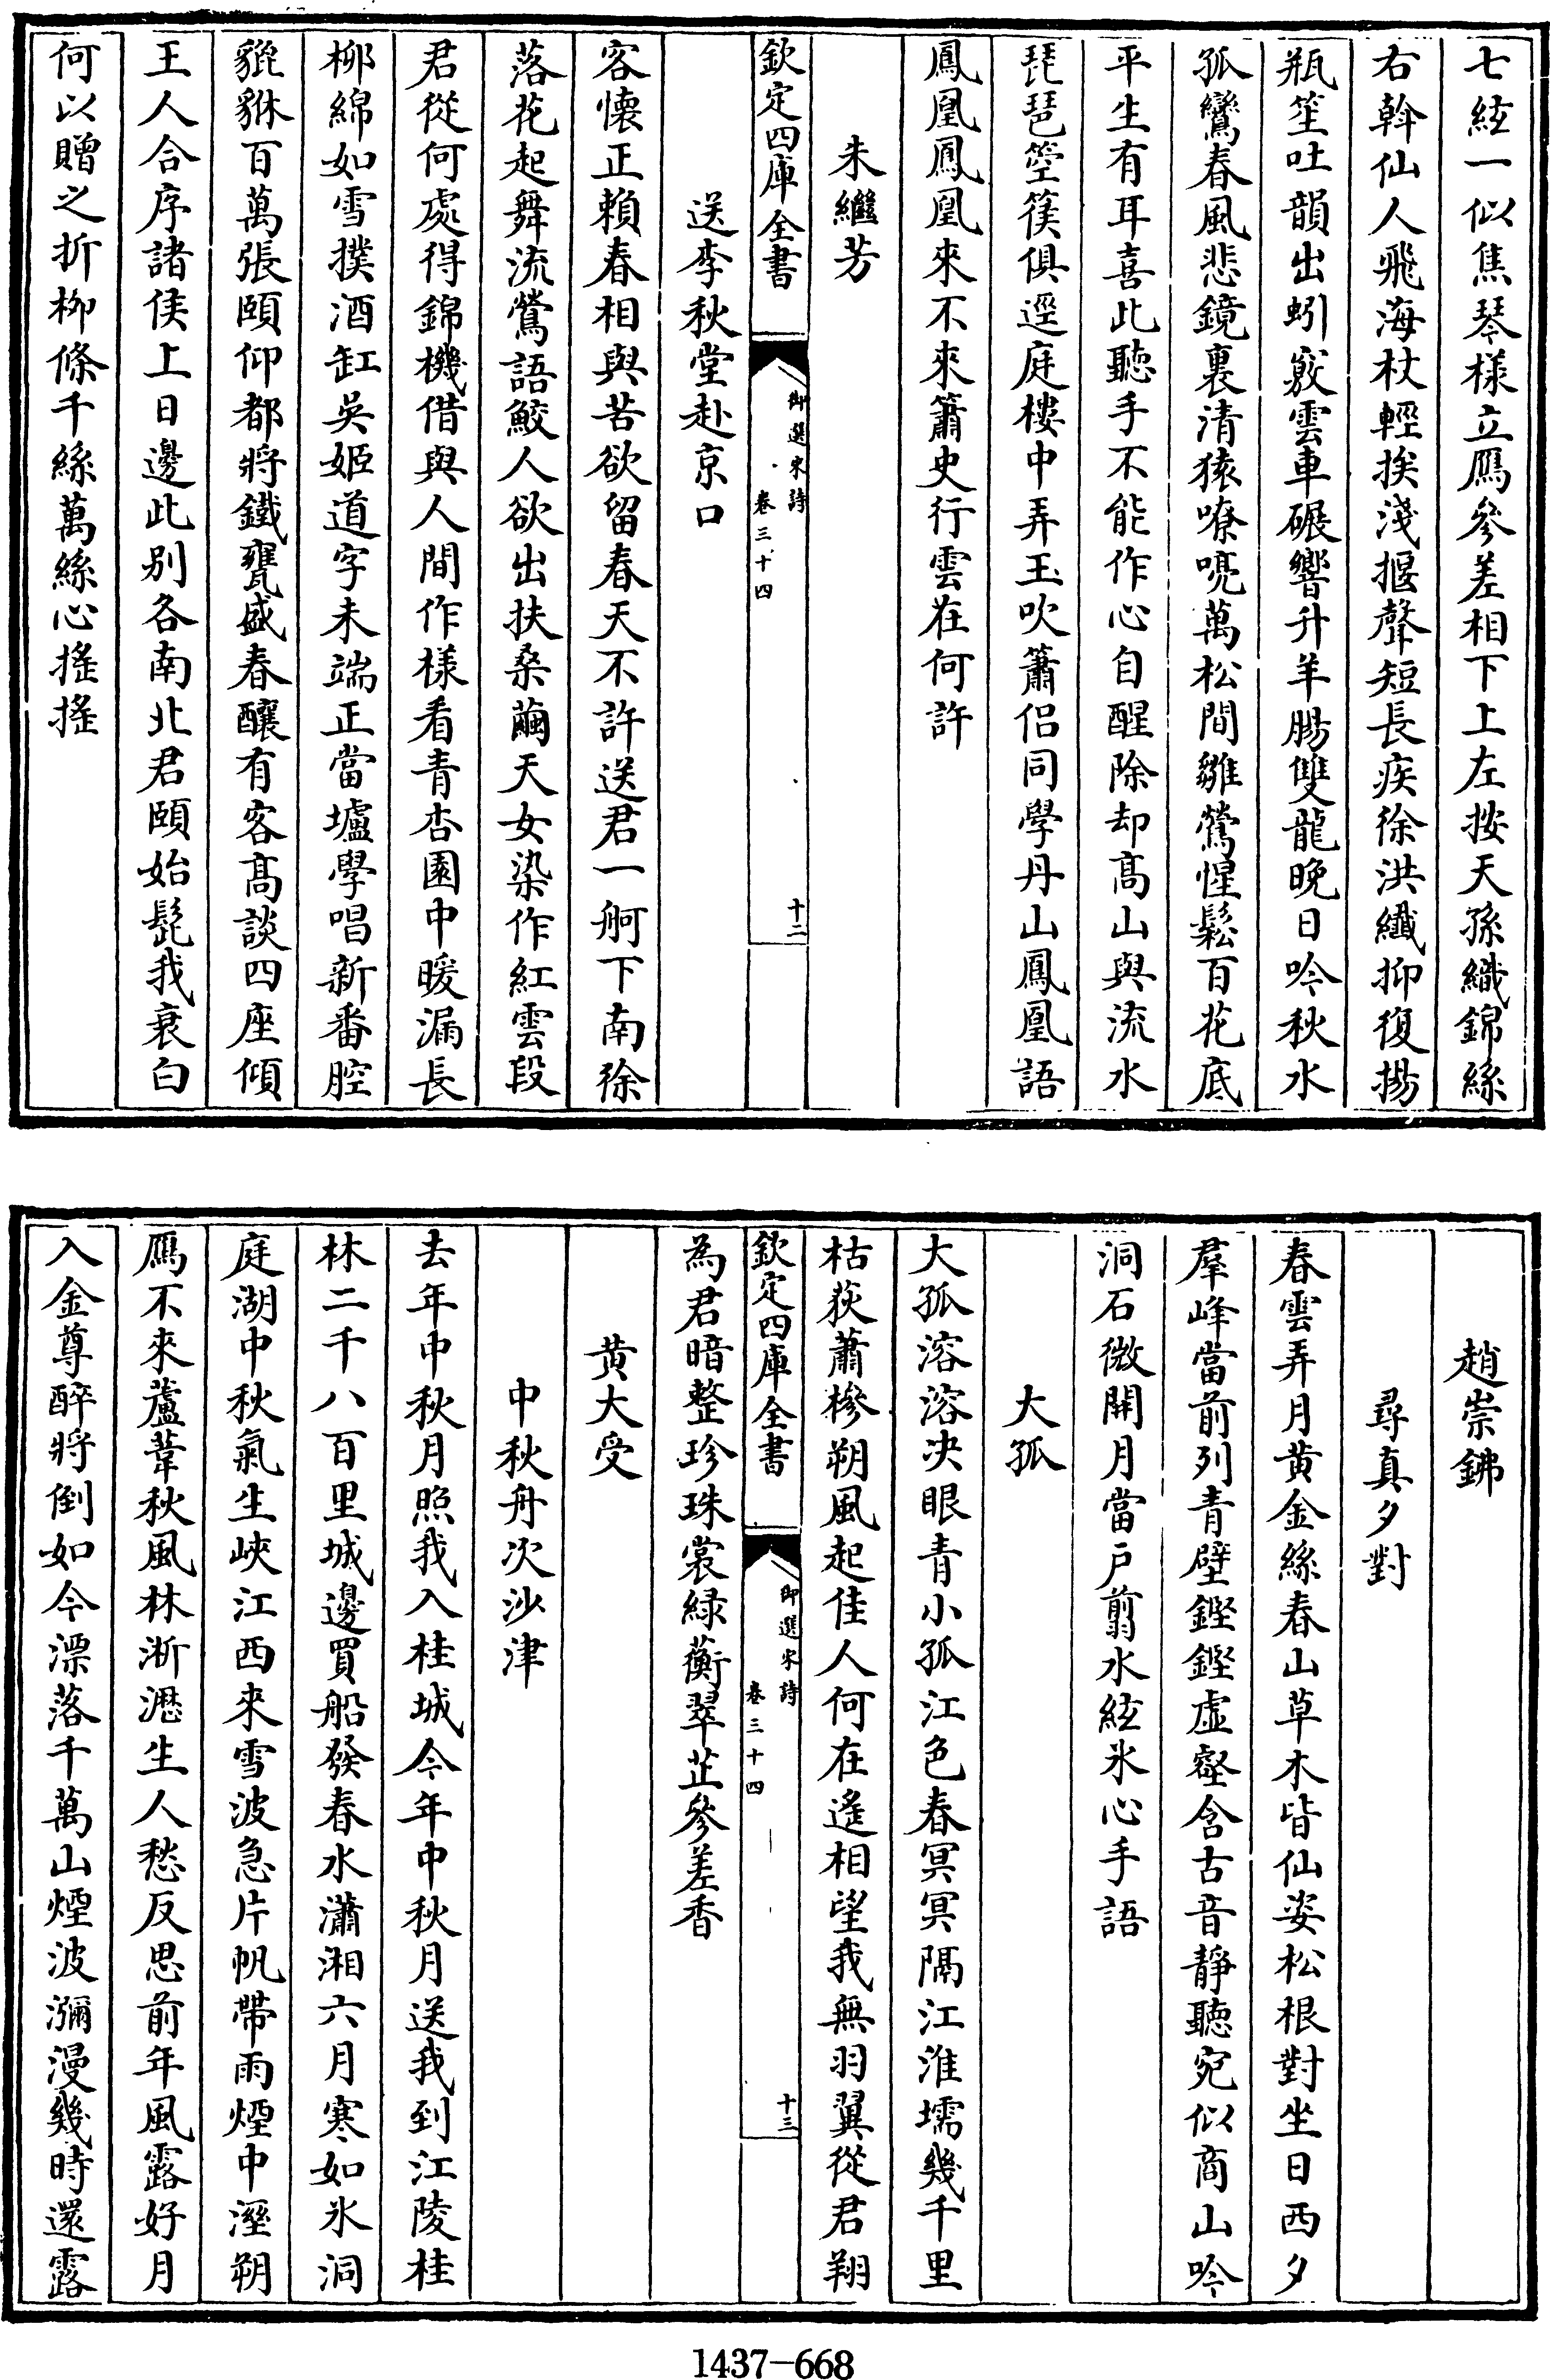 七絃一似焦琴様立鴈參差相下上左按天孫織錦絲
右斡仙人飛海杖輕挨淺揠聲短長疾徐洪纖抑復揚
瓶笙吐韻出蚓竅雲車碾響升羊腸雙龍晚日吟秋水
孤鸞春風悲鏡裏清猿嘹喨萬松間雛鶯惺鬆百花底
平生有耳喜此聽手不能作心自醒除却髙山與流水
琵琶箜篌俱逕庭樓中弄玉吹簫侣同學丹山鳳凰語
鳳凰鳳凰來不來簫史行雲在何許
朱繼芳
欽定四庫全書
御選宋詩
卷三十四
十二
送李秋堂赴京口
客懐正賴春相與苦欲留春天不許送君一舸下南徐
落花起舞流鶯語鮫人欲出扶桑繭天女染作紅雲段
君從何處得錦機借與人間作様看青杏園中暖漏長
栁綿如雪撲酒缸吳姬道字未端正當壚學唱新番腔
貔貅百萬張頤仰都將鐵甕盛春釀有客髙談四座傾
王人合序諸侯上日邊此别各南北君頤始髭我衰白
何以贈之折栁條千絲萬絲心搖搖
趙崇鉘
尋真夕對
春雲弄月黄金絲春山草木皆仙姿松根對坐日西夕
羣峰當前列青壁鏗鏗虚壑含古音靜聽宛似商山吟
洞石微開月當户翦水絃氷心手語
大孤
大孤溶溶决眼青小孤江色春冥冥隔江淮壖幾千里
枯荻蕭槮朔風起佳人何在遙相望我無羽翼從君翔
欽定四庫全書
御選宋詩
卷三十四
十三
為君暗整珍珠裳緑蘅翠芷參差香
黄大受
中秋舟次沙津
去年中秋月照我入桂城今年中秋月送我到江陵桂
林二千八百里城邊買船發春水瀟湘六月寒如氷洞
庭湖中秋氣生峽江西來雪波急片帆帶雨煙中溼朔
鴈不來蘆葦秋風林淅瀝生人愁反思前年風露好月
入金尊醉將倒如今漂落千萬山煙波瀰漫幾時還露
1437-668